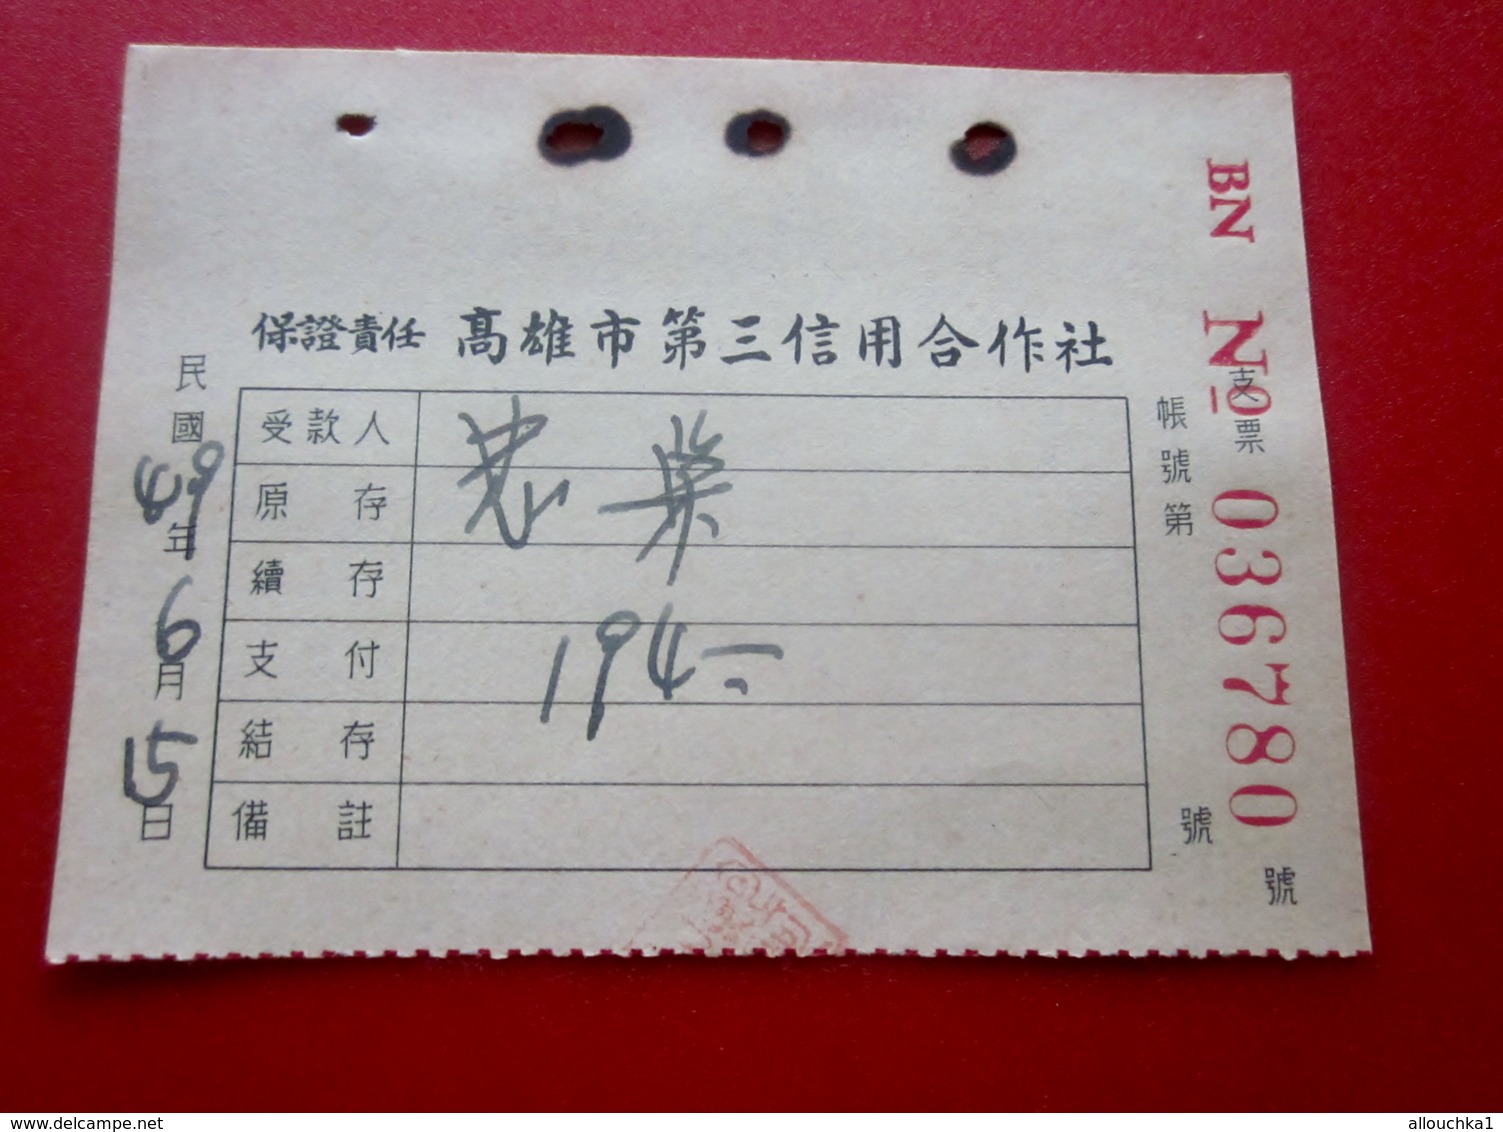 BN No 036780
支票 號
帳號第 號
保證責任 高雄市第三信用合作社
民國49年6月15日
受款人
原存
續存
支付 194-
結存
備註
delcampe.net
allouchka1